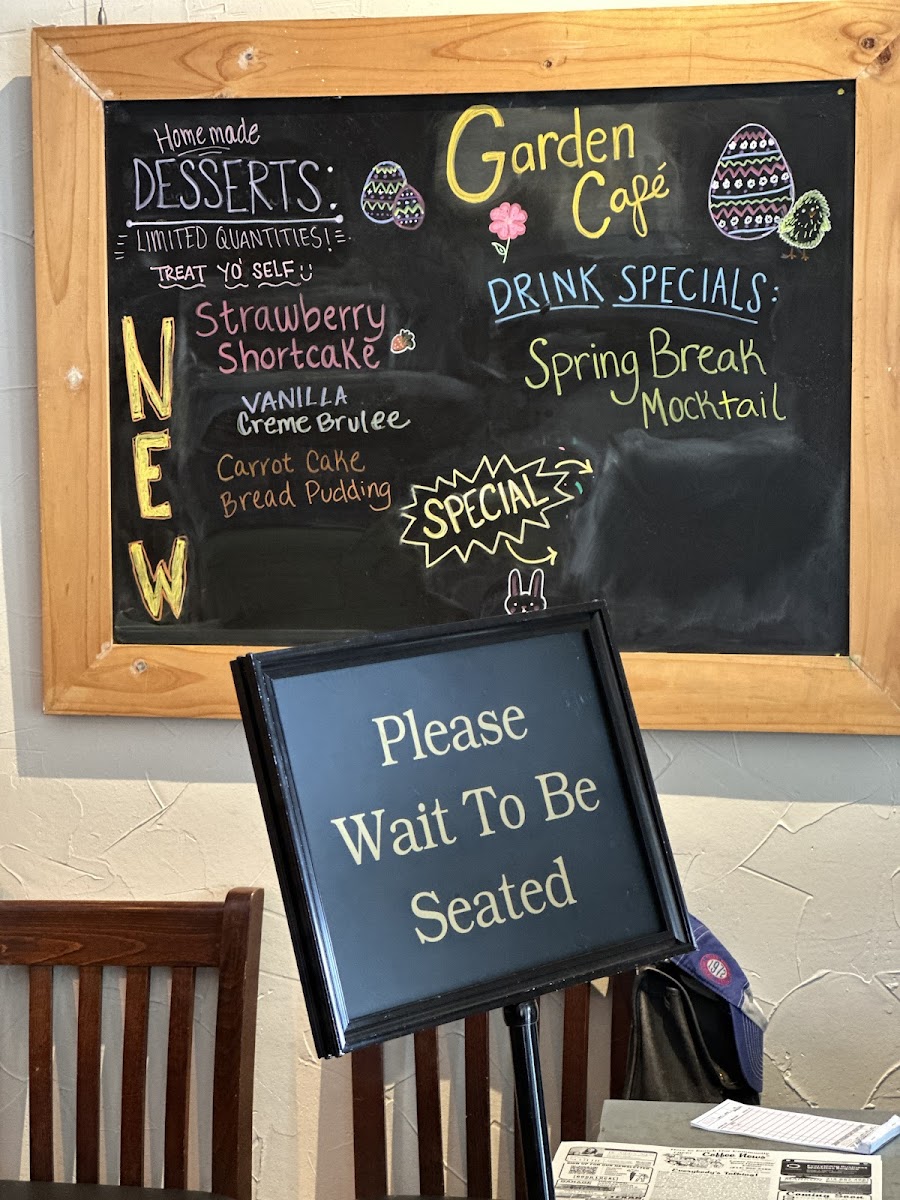 Homemade
DESSERTS:
LIMITED QUANTITIES!
TREAT YO' SELF
NEW
Strawberry
Shortcake
VANILLA
Creme Brulee
Carrot Cake
Bread Pudding
Garden
Café
DRINK SPECIALS:
Spring Break
Mocktail
SPECIAL
Please
Wait To Be
Seated
Coffee News